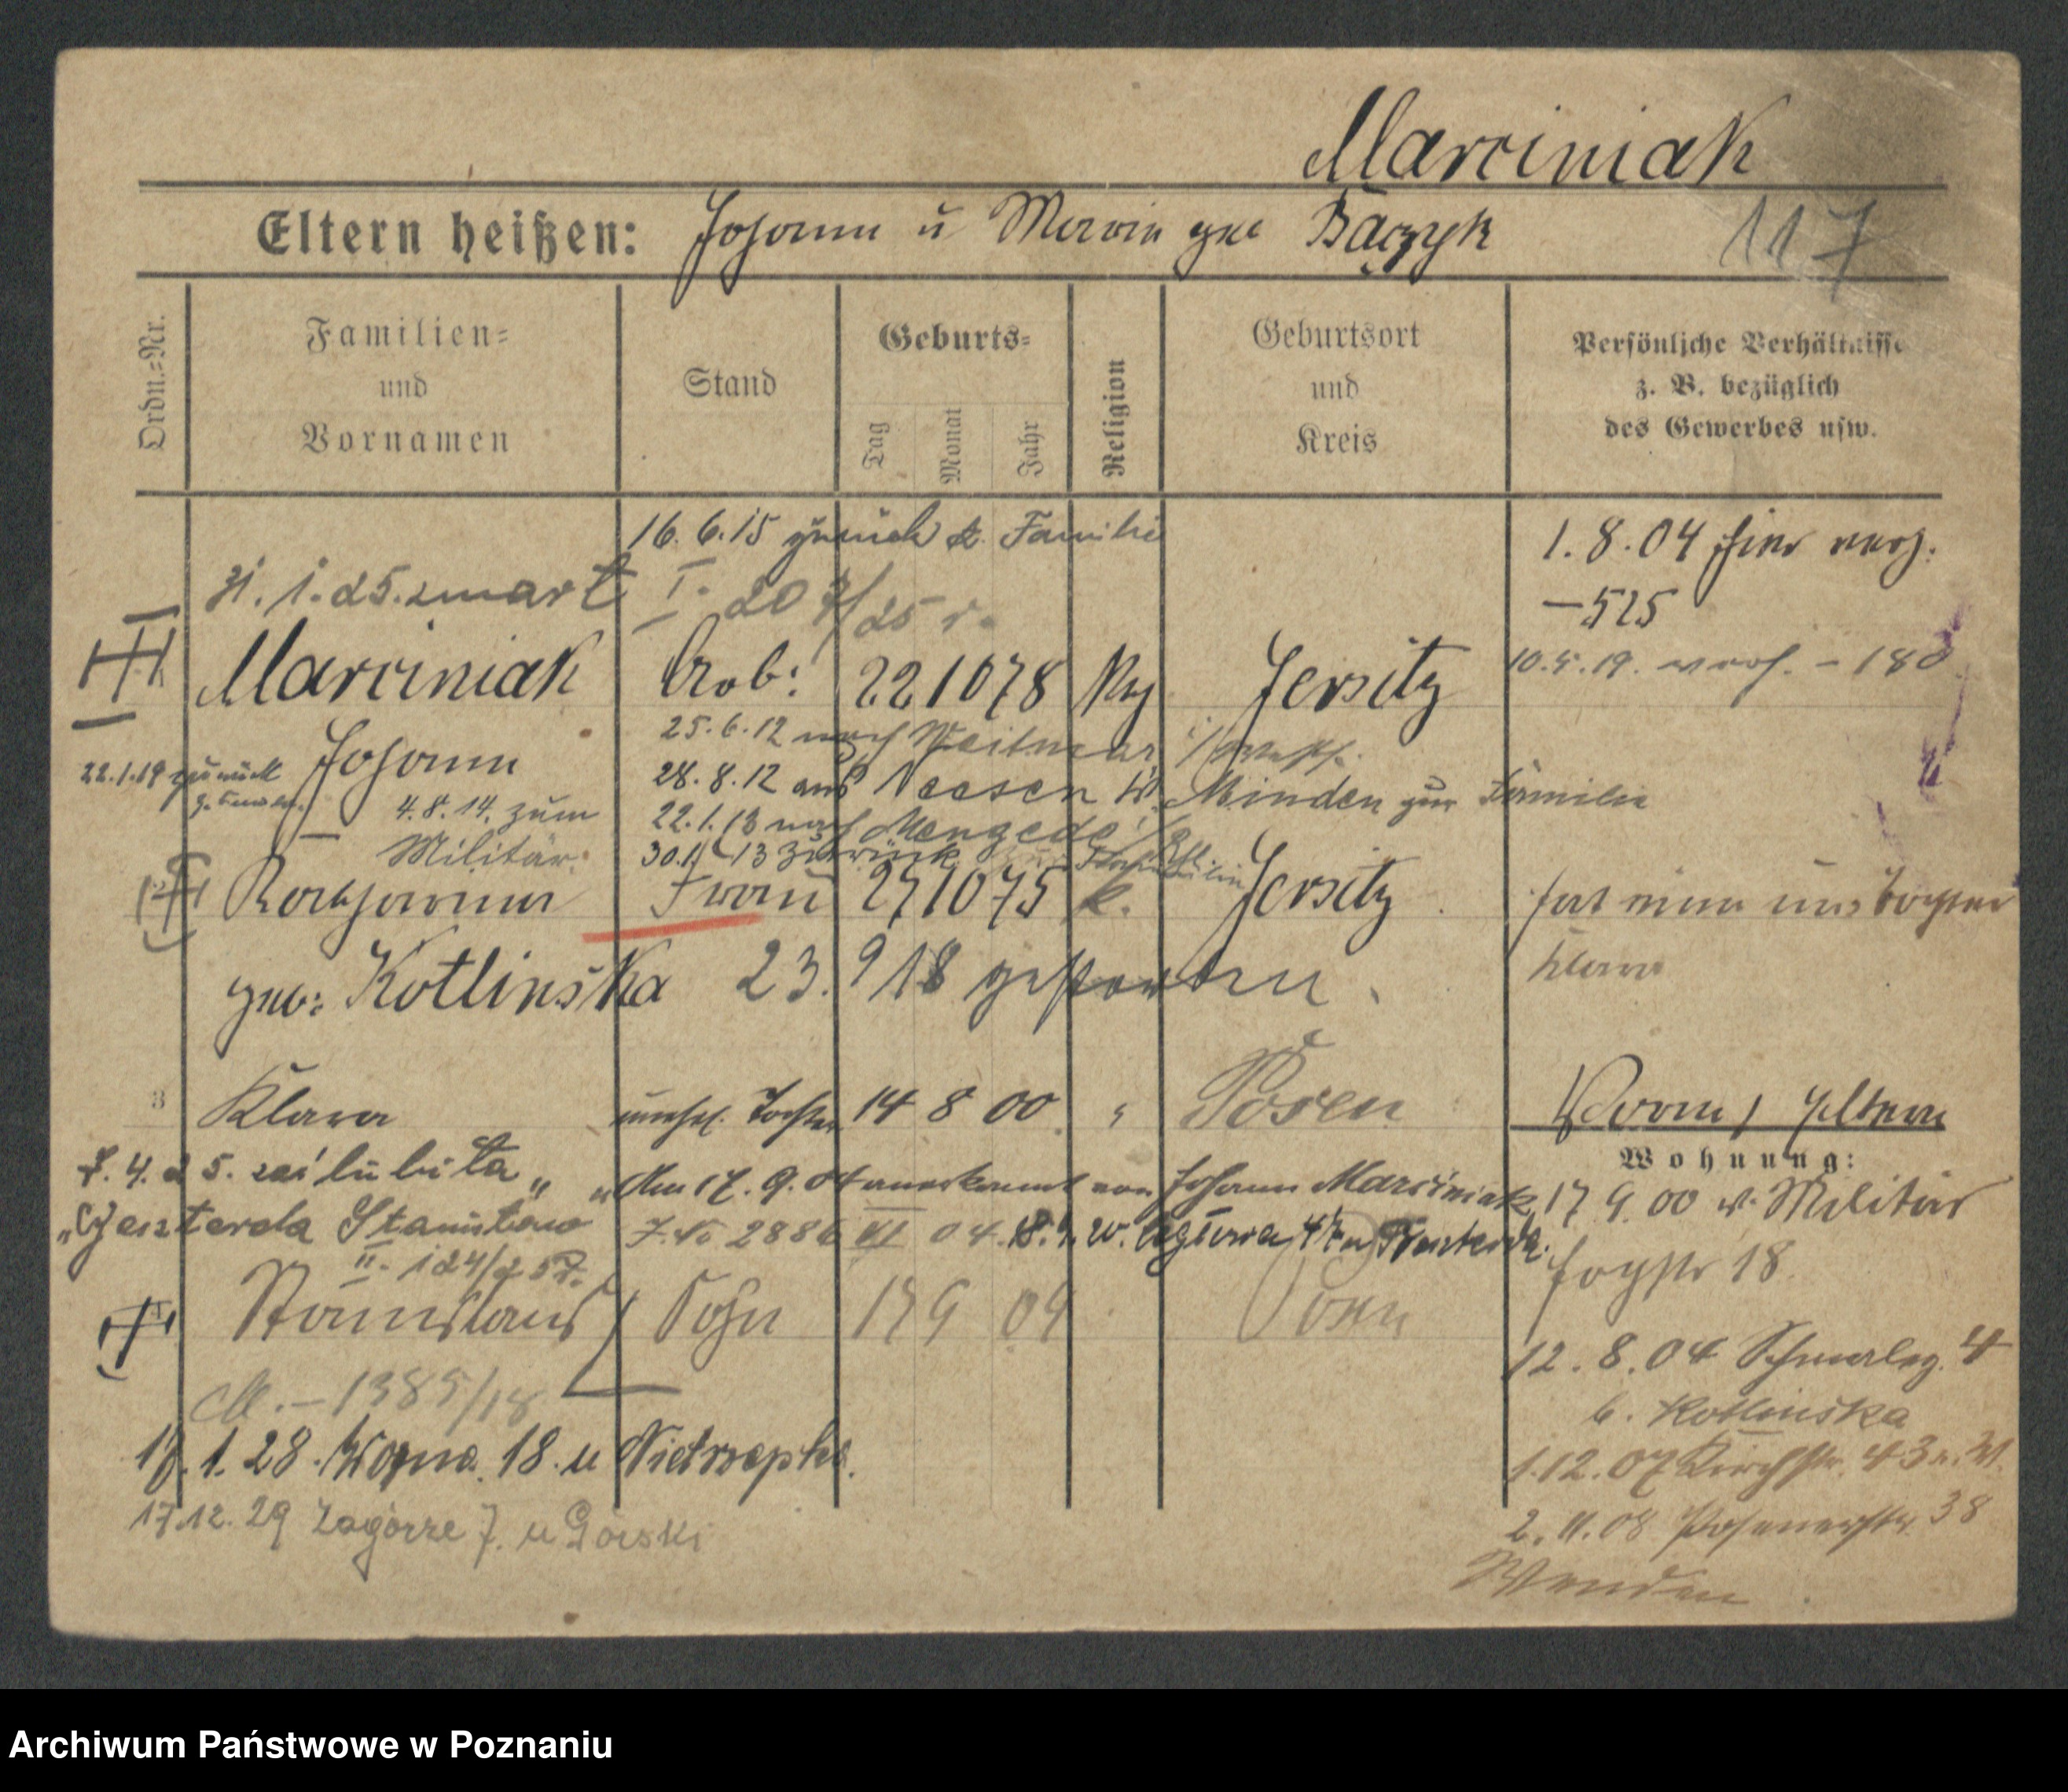 Marciniak
Eltern heißen: Johann u Maria geb Bączyk 117
Ordn.=Nr.
Familien= und Vornamen
Stand
Geburts=
Tag Monat Jahr
Religion
Geburtsort und Kreis
Persönliche Verhältnisse z. B. bezüglich des Gewerbes usw.
16.6.15 zurück z. Familie
1.8.04 hier verh.
–525
31.1.25. zmarł I. 207/25 r.
10.5.19. verh. – 180
Marciniak Arb: 22 10 78 Kg Jersitz
Johann
25.6.12 nach Weitmar i/Westf.
22.1.19 zurück
28.8.12 aus Neesen Minden zur Familie
4.8.14. zum Militär.
22.1.13 nach Mengede
30.1.13 zurück
Frau 27 10 75 k. Jersitz
geb: Kotlinska 23. 9 18 gestorben.
Klara
3 Klara unehel. Tochter 14 8 00 " Posen
Vorm / Eltern
Wohnung:
7.4.25. zaślubiła "
"Am 17.9.04 anerkannt von Johann Marciniak,
17 9.00 v. Militär
"Genterela Stanisława
J.No 2886 VI 04.
II. 124/25 r.
18.
Stanislaus Sohn 17 9 04 Posen
12.8.04 Schmaleg. 4
b. Kotlinska
M. – 1385/18
1.12.07 Kirchstr. 43
17.1.28. 18. u
17.12.29 Zagórze 7. u Górski
2.11.08 Posenerstr. 38
Wenden
Archiwum Państwowe w Poznaniu